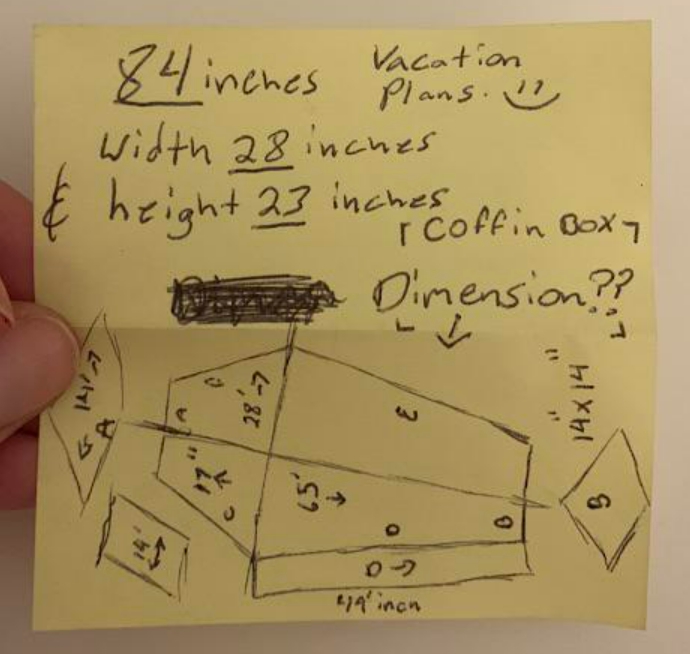 84 inches
Vacation
Plans.
Width 28 inches
& height 23 inches
「Coffin Box¬
Dimension??
14'
A
A
C
28'
E
14x14"
17"
C
65'
B
B
14'
D
D